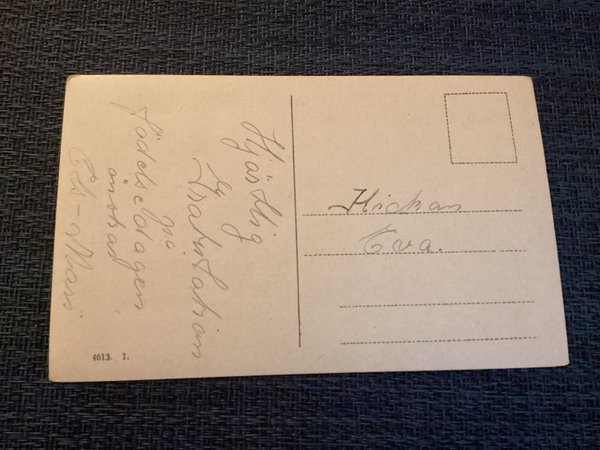 Hjärtlig
Gratulation
på
födelsedagen
önskar
Mari
Flickan
Eva.
4613. 1.